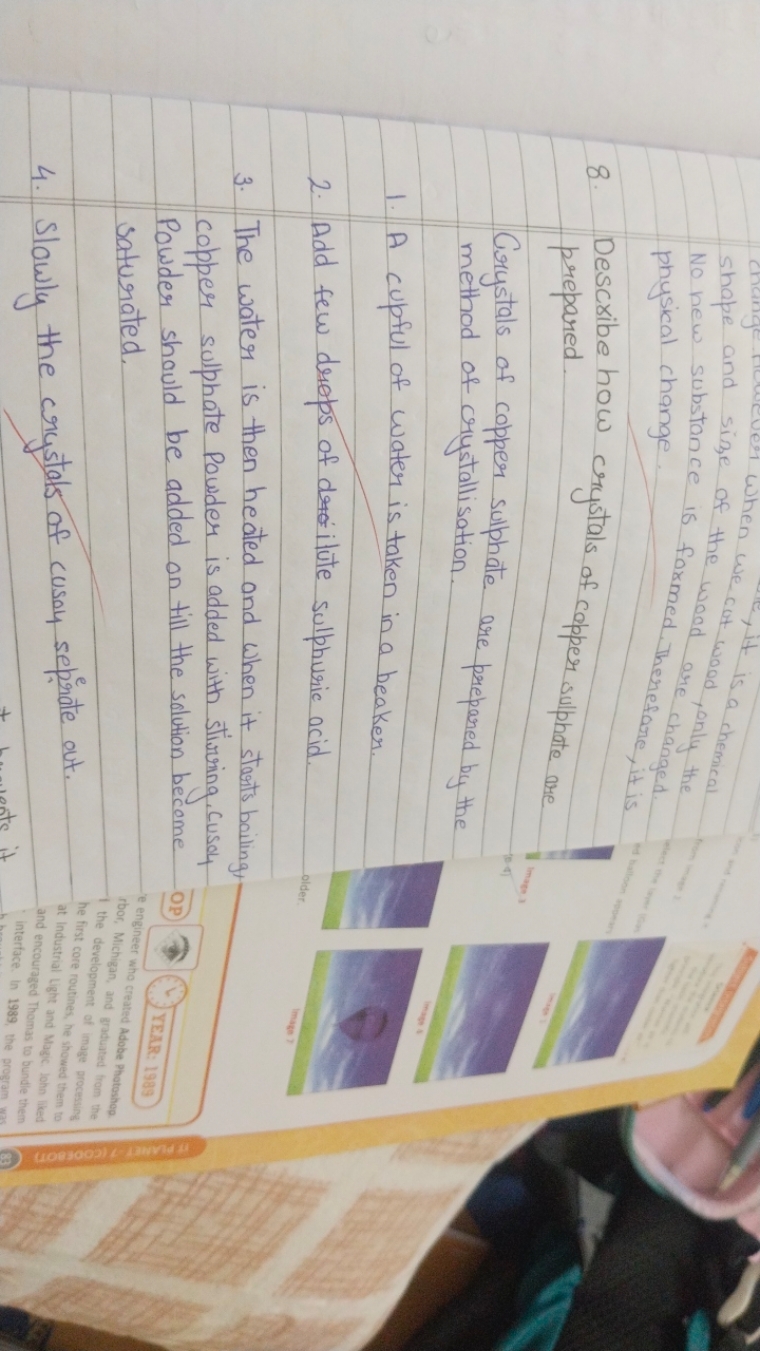 change. However when we cut wood, only the
shape and size of the wood are changed.
No new substance is formed. Therefore, it is
physical change.
8. Describe how crystals of copper sulphate are
prepared.
Crystals of copper sulphate are prepared by the
method of crystallisation.
1. A cupful of water is taken in a beaker.
2. Add few drops of dilute sulphuric acid.
3. The water is then heated and when it starts boiling,
copper sulphate powder is added with stirring. CuSO4
Powder should be added on till the solution become
saturated.
4. Slowly the crystals of CuSO4 seperate out.
older.
Image 3
Image 6
Image 7
OP
YEAR: 1989
e engineer who created Adobe Photoshop.
rbor, Michigan, and graduated from the
the development of image processing
he first core routines, he showed them to
at Industrial Light and Magic. John liked
and encouraged Thomas to bundle them
interface. In 1989, the program was
IT PLANET-7 (CODEBOT)
83